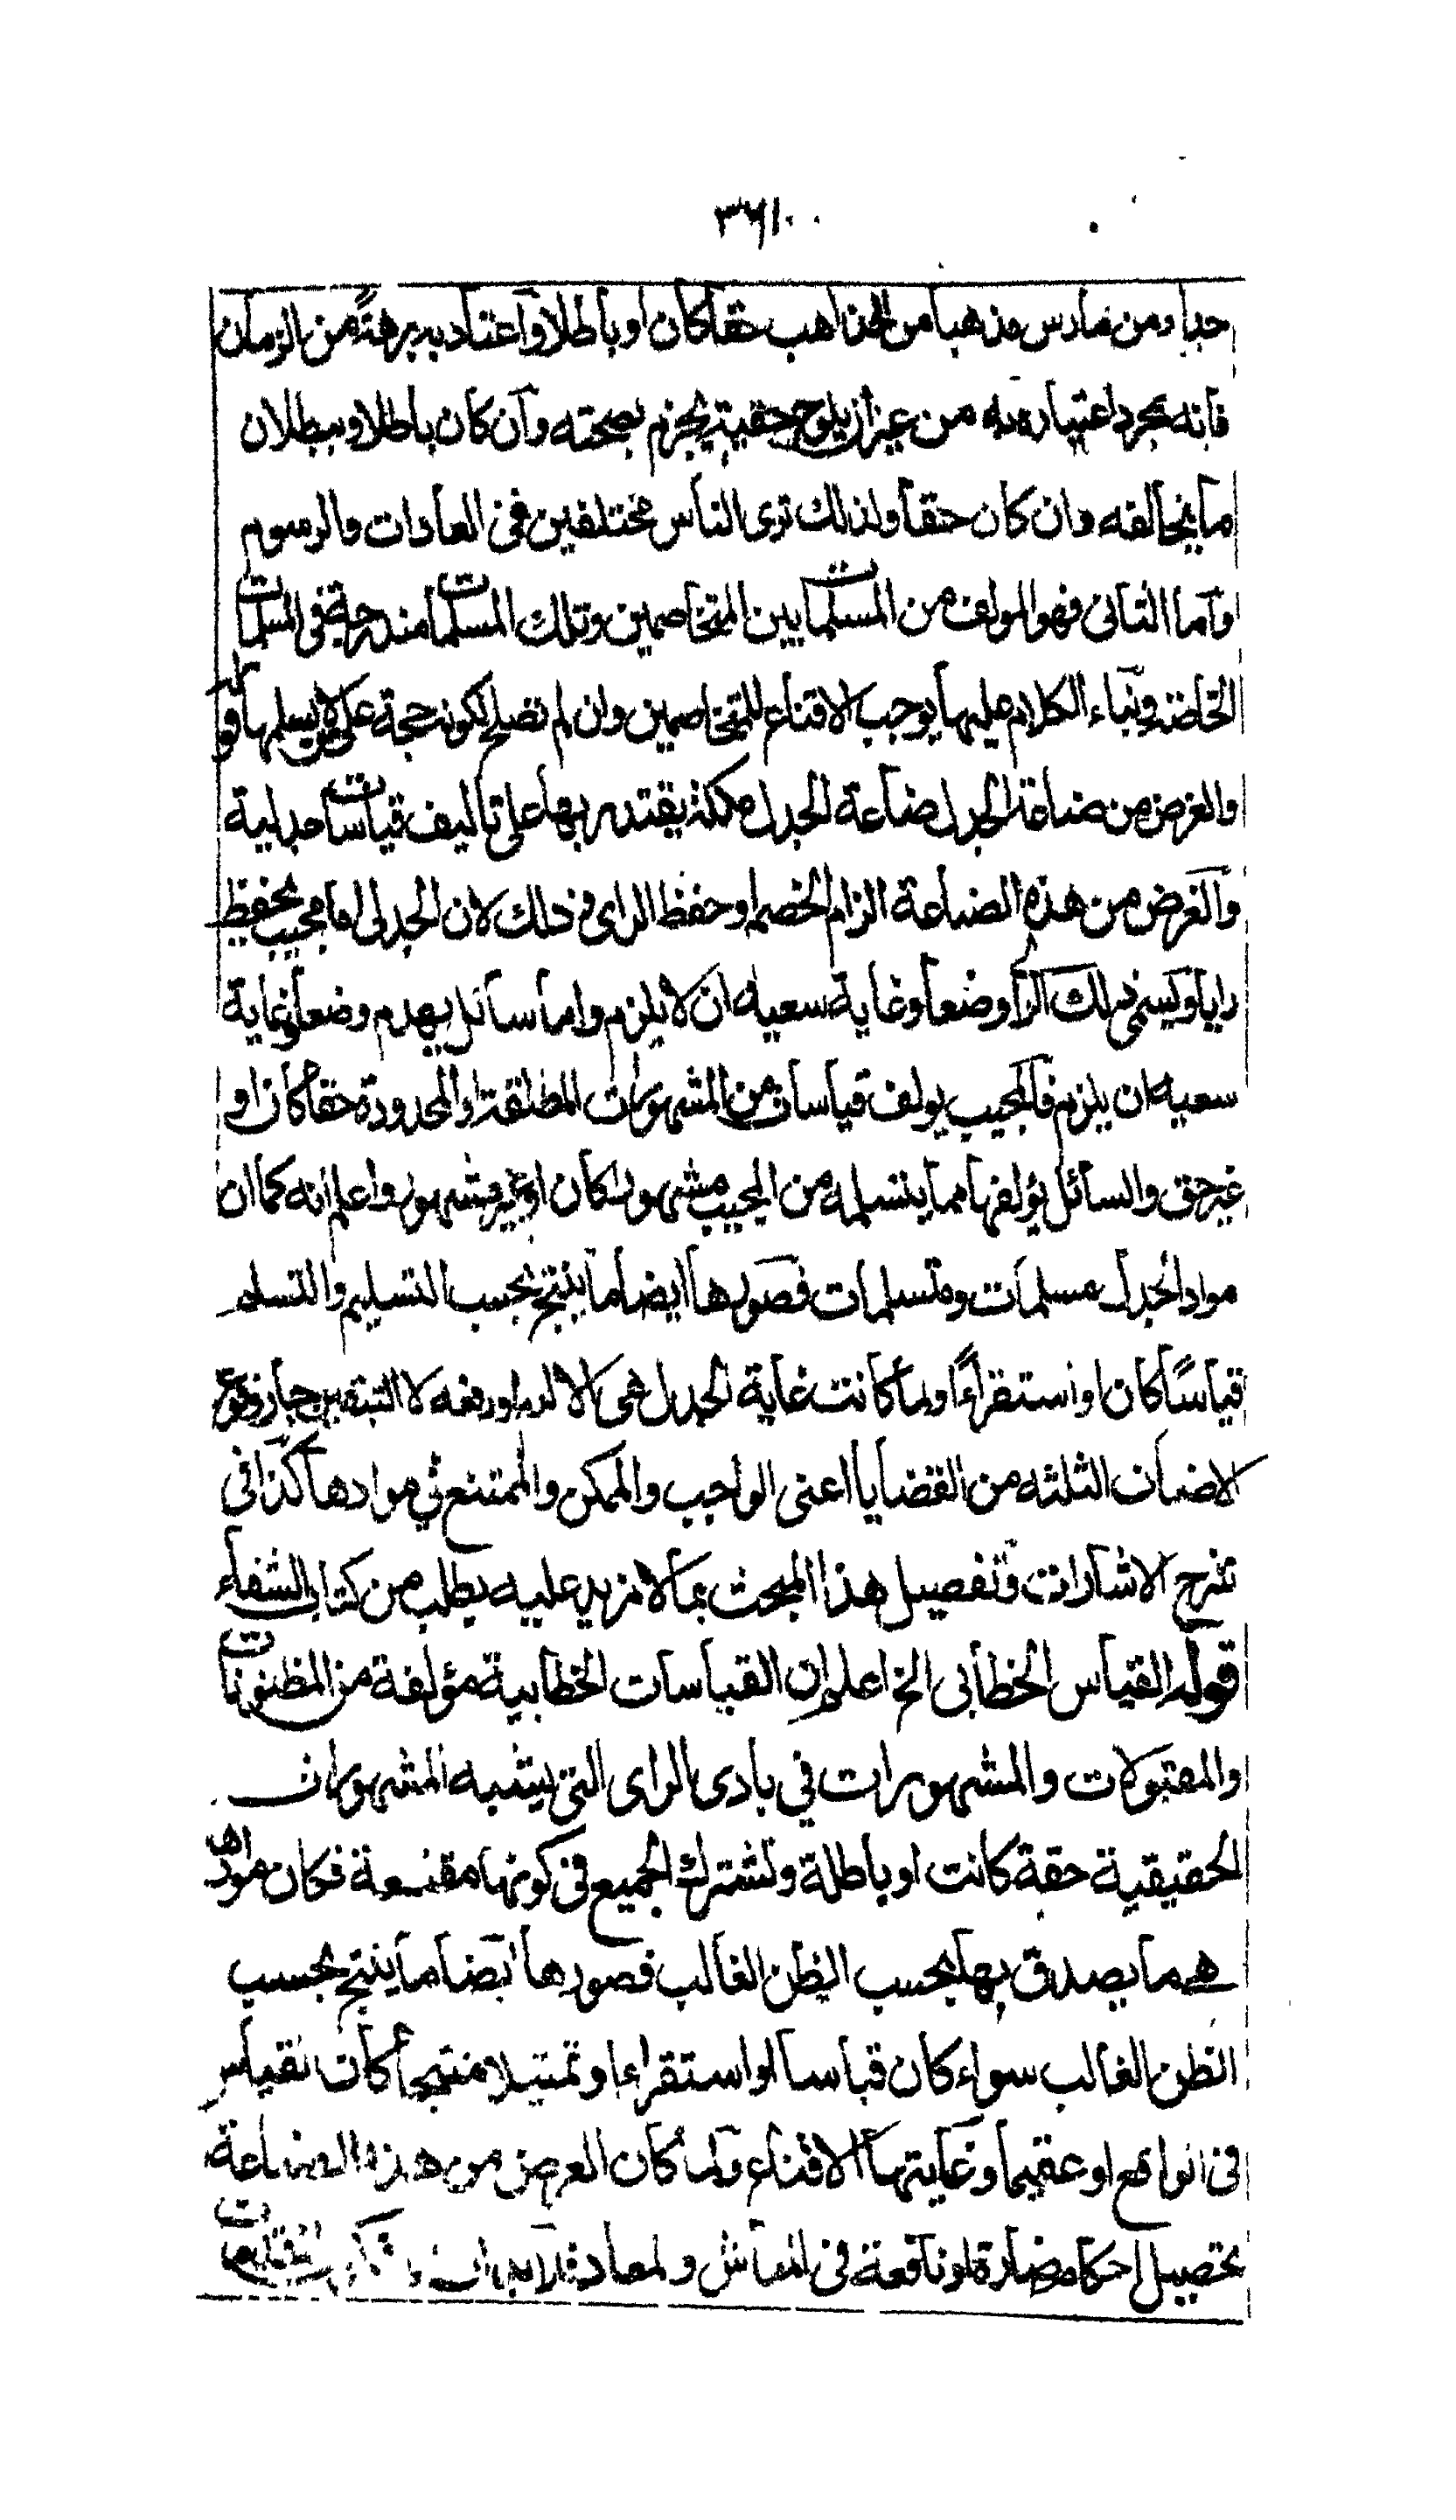 ٣٦١
جدا ومن مارس مذهبا من المذاهب حقا كان او باطلا واعتاد به برهة من الزمان
فانه بمجرد اعتياره به من غير ان يلوح حقيته يجزم بصحته وان كان باطلا وببطلان
ما يخالفه وان كان حقا ولذلك ترى الناس مختلفين في العادات والرسوم
واما الثاني فهو المولف من المسلمات بين المتخاصمين وتلك المسلمات مندرجة في المسلمات
الخاصة وبناء الكلام عليها يوجب الاقناع للمتخاصمين وان لم تصلح لكونه حجة على من لا يسلمها
والغرض من صناعة الجدل صناعة الجدل ملكة يقتدر بها على تاليف قياسات جدلية
والغرض من هذه الصناعة الزام الخصم او حفظ الراى في ذلك لان الجدلى اما مجيب يحفظ
رايا ويسمى ذلك الراى وضعا وغاية سعيه ان لا يلزم واما سائل يهدم وضعا وغاية
سعيه ان يلزم فالمجيب يولف قياسات من المشهورات المطلقة او المحدودة حقا كان او
غير حق والسائل يؤلفها مما يتسلمه من المجيب مشهورا كان او غير مشهور واعلم انه كما ان
مواد الجدل مسلمات ومتسلمات فصورها ايضا ما ينتج بحسب التسليم والتسلم
قياسًا كان او استقراءً ولما كانت غاية الجدل هي الالزام او دفعه لا التيقين جاز وقوع
الاصناف الثلثه من القضايا اعنى الواجب والممكن والممتنع في موادها كذا في
شرح الاشارات وتفصيل هذا المبحث بما لا مزيد عليه يطلب من كتاب الشفاء
قوله القياس الخطابى الخ اعلم ان القياسات الخطابية مؤلفة من المظنونات
والمقبولات والمشهورات في بادى الراى التى يشبه المشهورات
الحقيقية حقة كانت او باطلة وتشترك الجميع في كونها مقنعة فكان موادها
هى ما يصدق بها بحسب الظن الغالب فصورها ايضا ما ينتج بحسب
الظن الغالب سواء كان قياسا او استقراء او تمثيلا منتجا كان القياس
في الواقع او عقيما وغايتها الاقناع ولما كان الغرض من هذه الصناعة
تحصيل احكام ضارة او نافعة في المعاش والمعاد